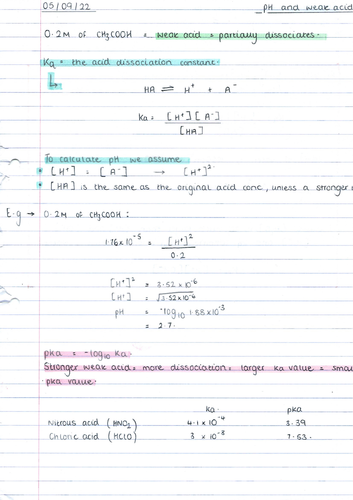 05/09/22
pH and weak acid
0.2M of CH3COOH = weak acid = partially dissociates.
Ka = the acid dissociation constant.
HA ⇌ H+ + A-
Ka = [H+][A-]
[HA]
To calculate pH we assume
* [H+] = [A-] → [H+]²
* [HA] is the same as the original acid conc, unless a stronger
E.g → 0.2M of CH3COOH :
1.76 x 10^-5 = [H+]²
0.2
[H+]² = 3.52 x 10^-6
[H+] = √3.52 x 10^-6
pH = -log10 1.88 x 10^-3
= 2.7.
pka = -log10 Ka
Stronger weak acid = more dissociation = larger ka value = smal
pka value.
ka pka
Nitrous acid (HNO2) 4.1 x 10^-4 3.39
Chloric acid (HClO) 3 x 10^-8 7.53.